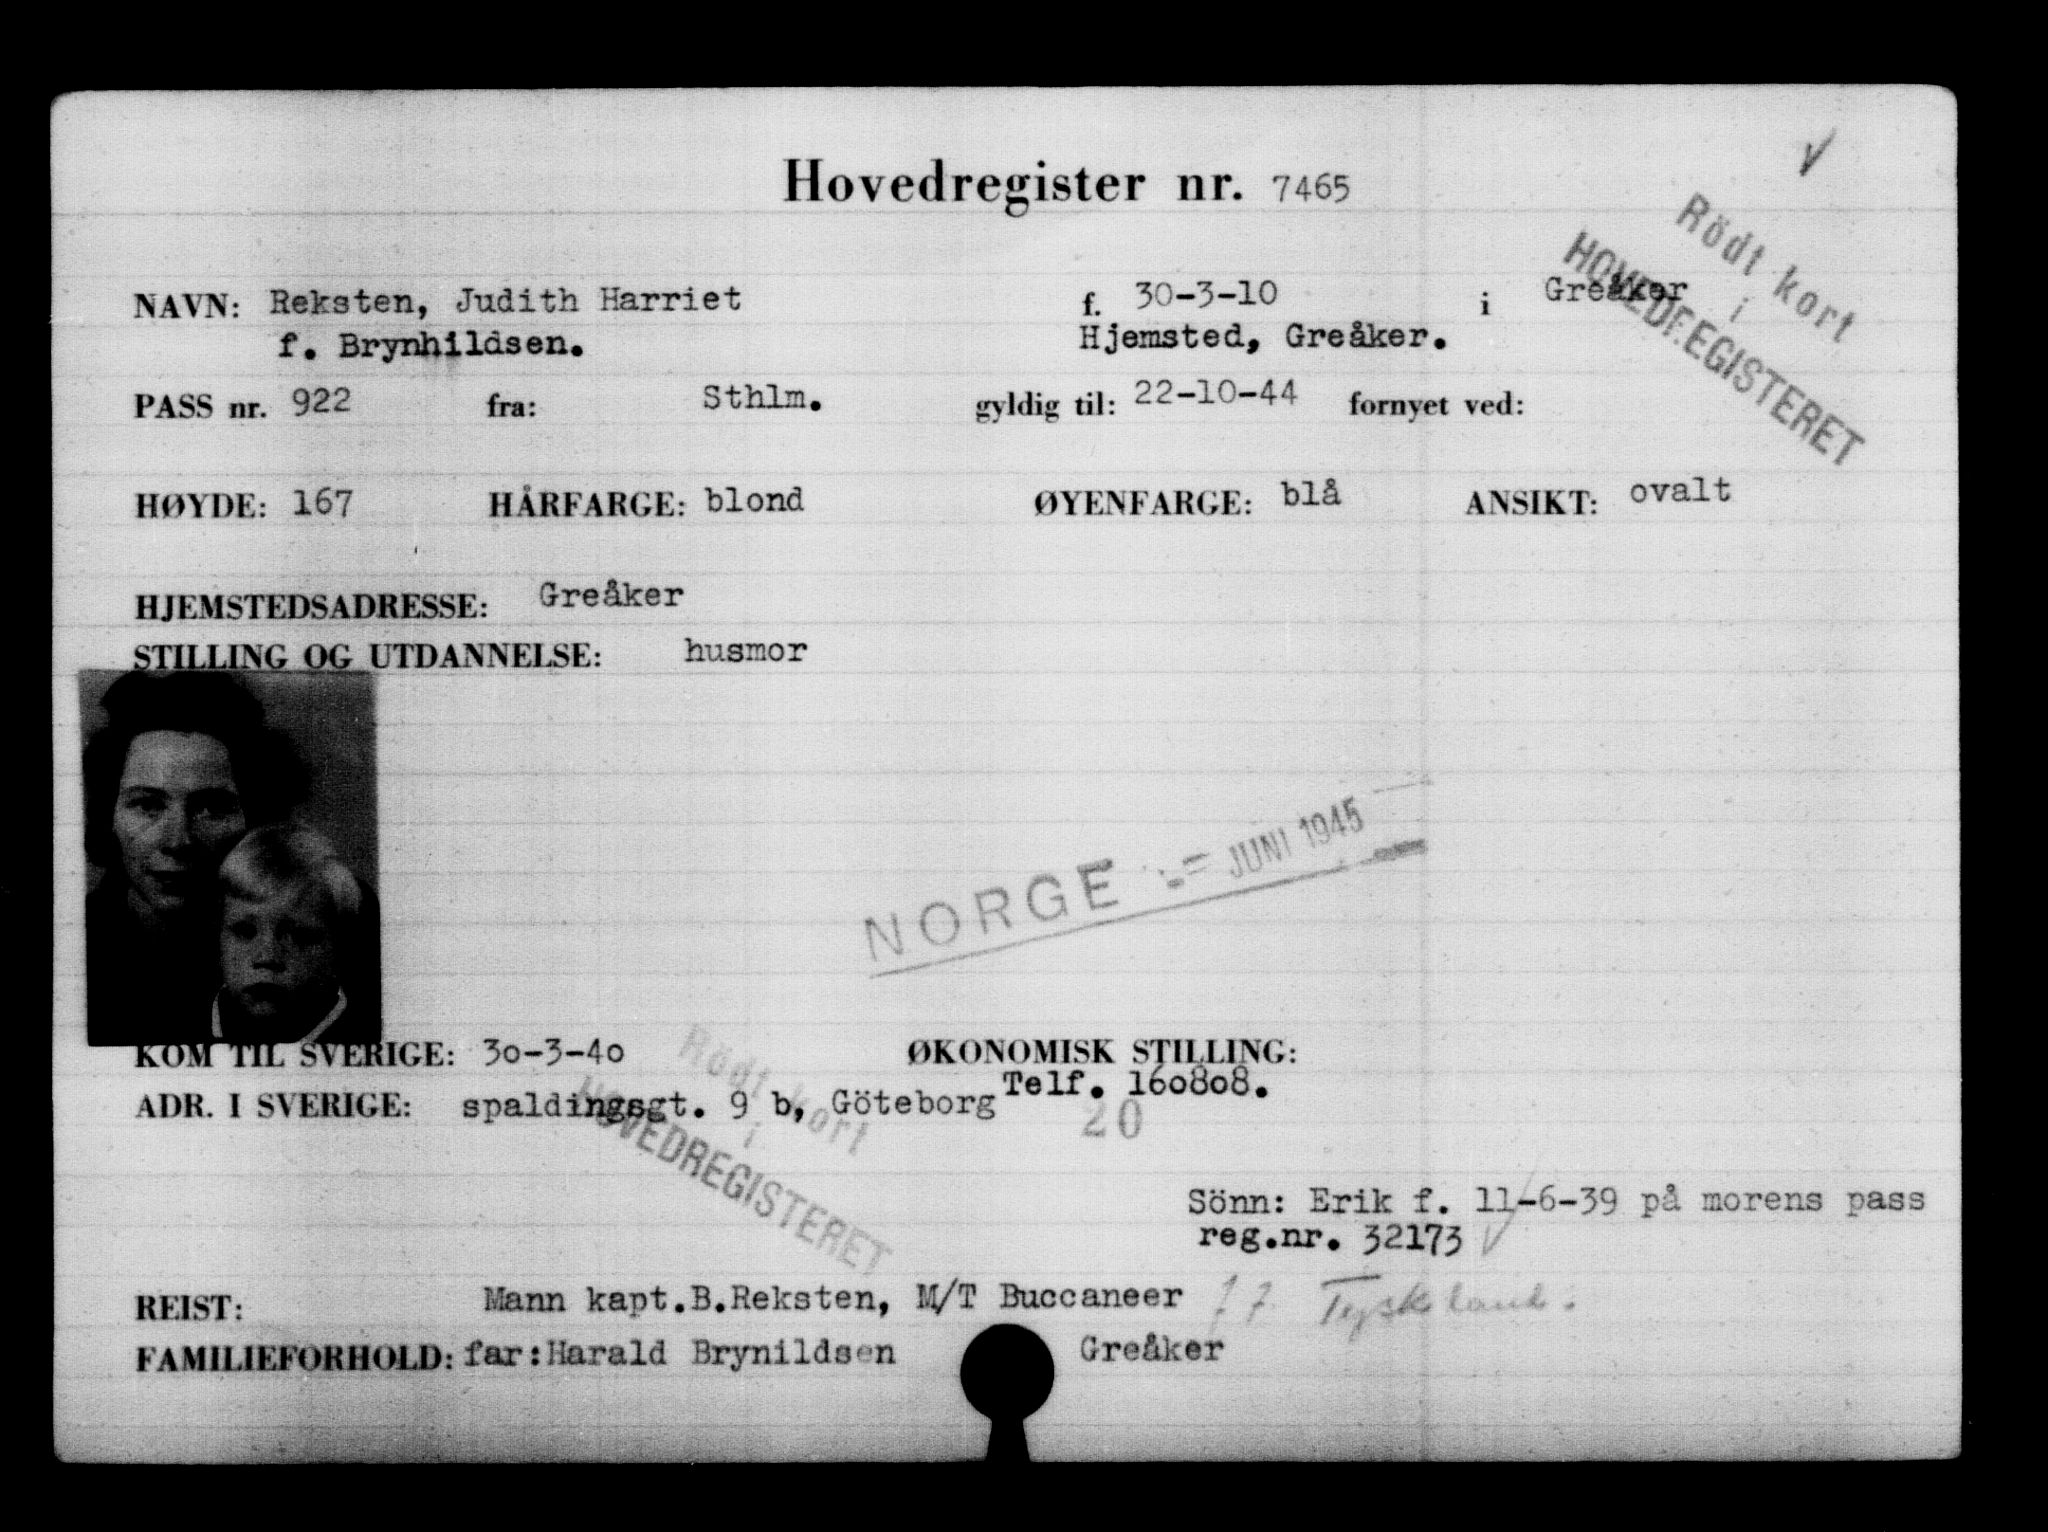 Hovedregister nr. 7465
Rödt kort
i
HOVEDREGISTERET
NAVN: Reksten, Judith Harriet f. 30-3-10 i Greåker
f. Brynhildsen. Hjemsted, Greåker.
PASS nr. 922 fra: Sthlm. gyldig til: 22-10-44 fornyet ved:
HØYDE: 167 HÅRFARGE: blond ØYENFARGE: blå ANSIKT: ovalt
HJEMSTEDSADRESSE: Greåker
STILLING OG UTDANNELSE: husmor
NORGE JUNI 1945
KOM TIL SVERIGE: 30-3-40 ØKONOMISK STILLING:
Telf. 160808.
ADR. I SVERIGE: spaldingsgt. 9 b, Göteborg
20
Rödt kort
i
HOVEDREGISTERET
Sönn: Erik f. 11-6-39 på morens pass
reg.nr. 32173
REIST: Mann kapt.B.Reksten, M/T Buccaneer Tyskland.
FAMILIEFORHOLD: far:Harald Brynildsen Greåker